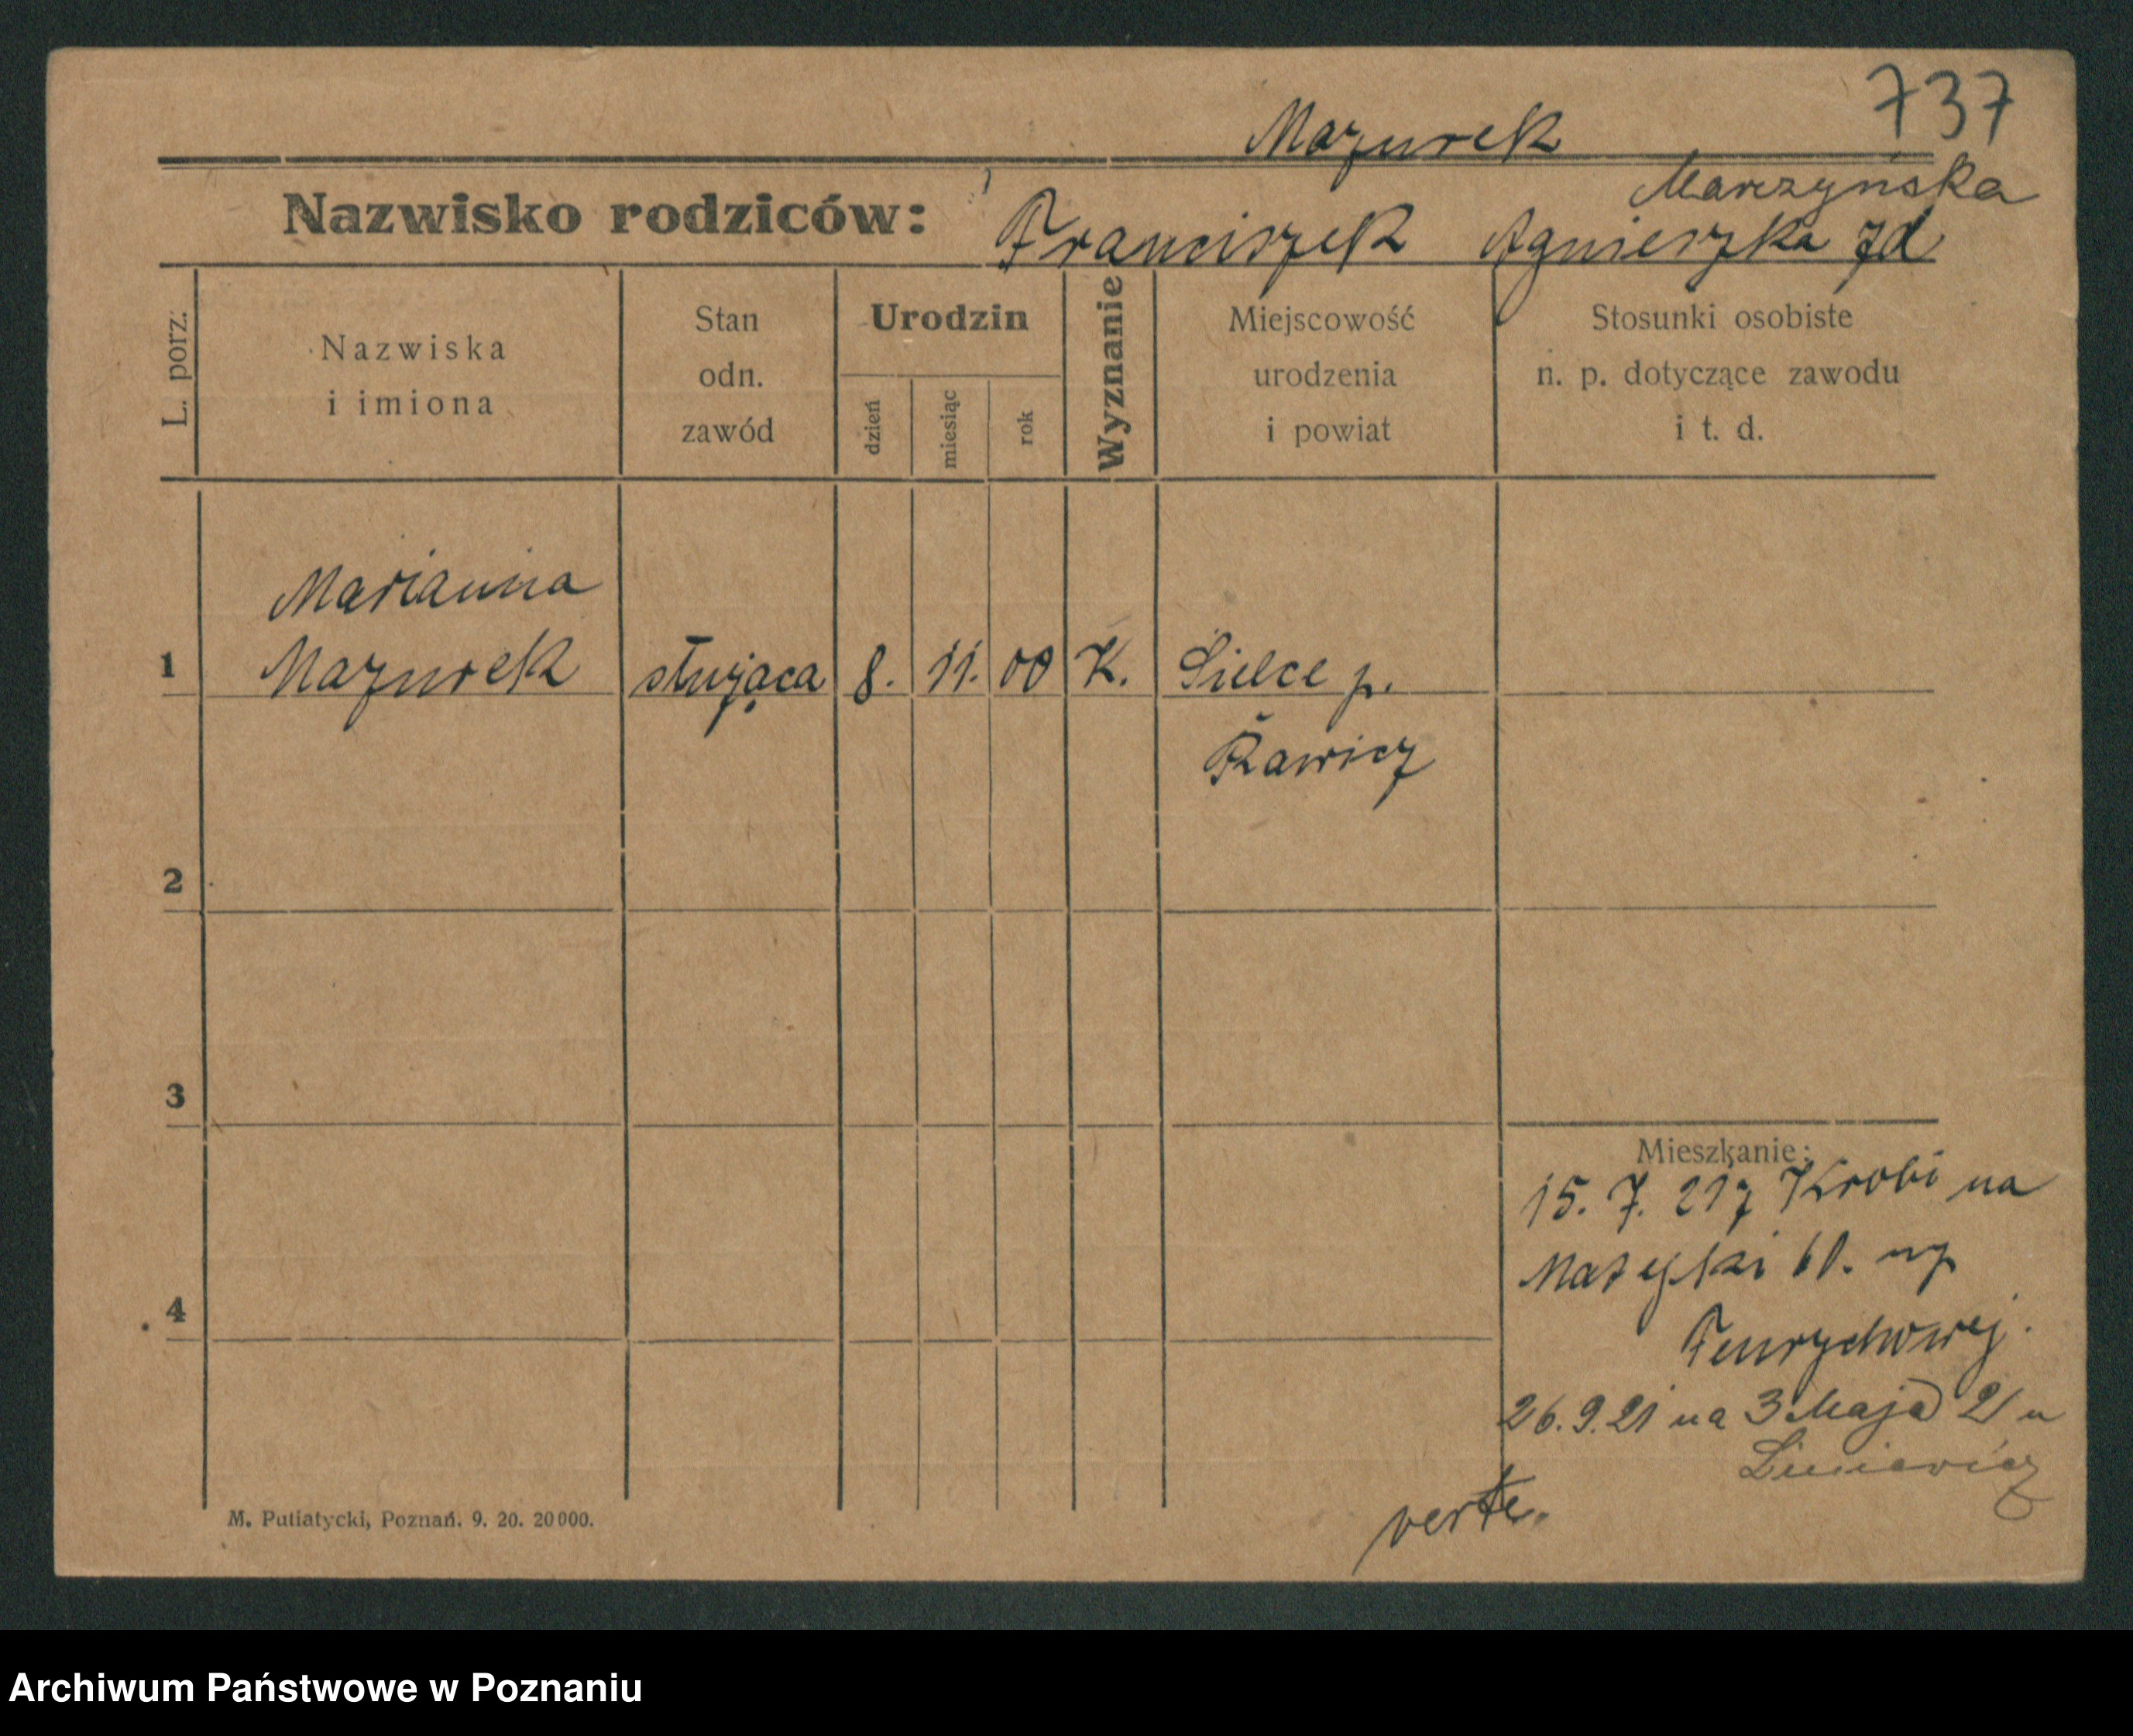 737
Mazurek
Marzyńska
Nazwisko rodziców: Franciszek Agnieszka zd
L. porz.
Nazwiska
i imiona
Stan
odn.
zawód
Urodzin
dzień
miesiąc
rok
Wyznanie
Miejscowość
urodzenia
i powiat
Stosunki osobiste
n. p. dotyczące zawodu
i t. d.
Marianna
1 Mazurek służąca 8. 11. 00 K. Sielce p.
Rawicz
2
3
4
Mieszkanie:
15. 7. 21 z Krobi na
Matejki 61.
26. 9. 21 na 3 Maja 2/ u
verte.
M. Putiatycki, Poznań. 9. 20. 20000.
Archiwum Państwowe w Poznaniu